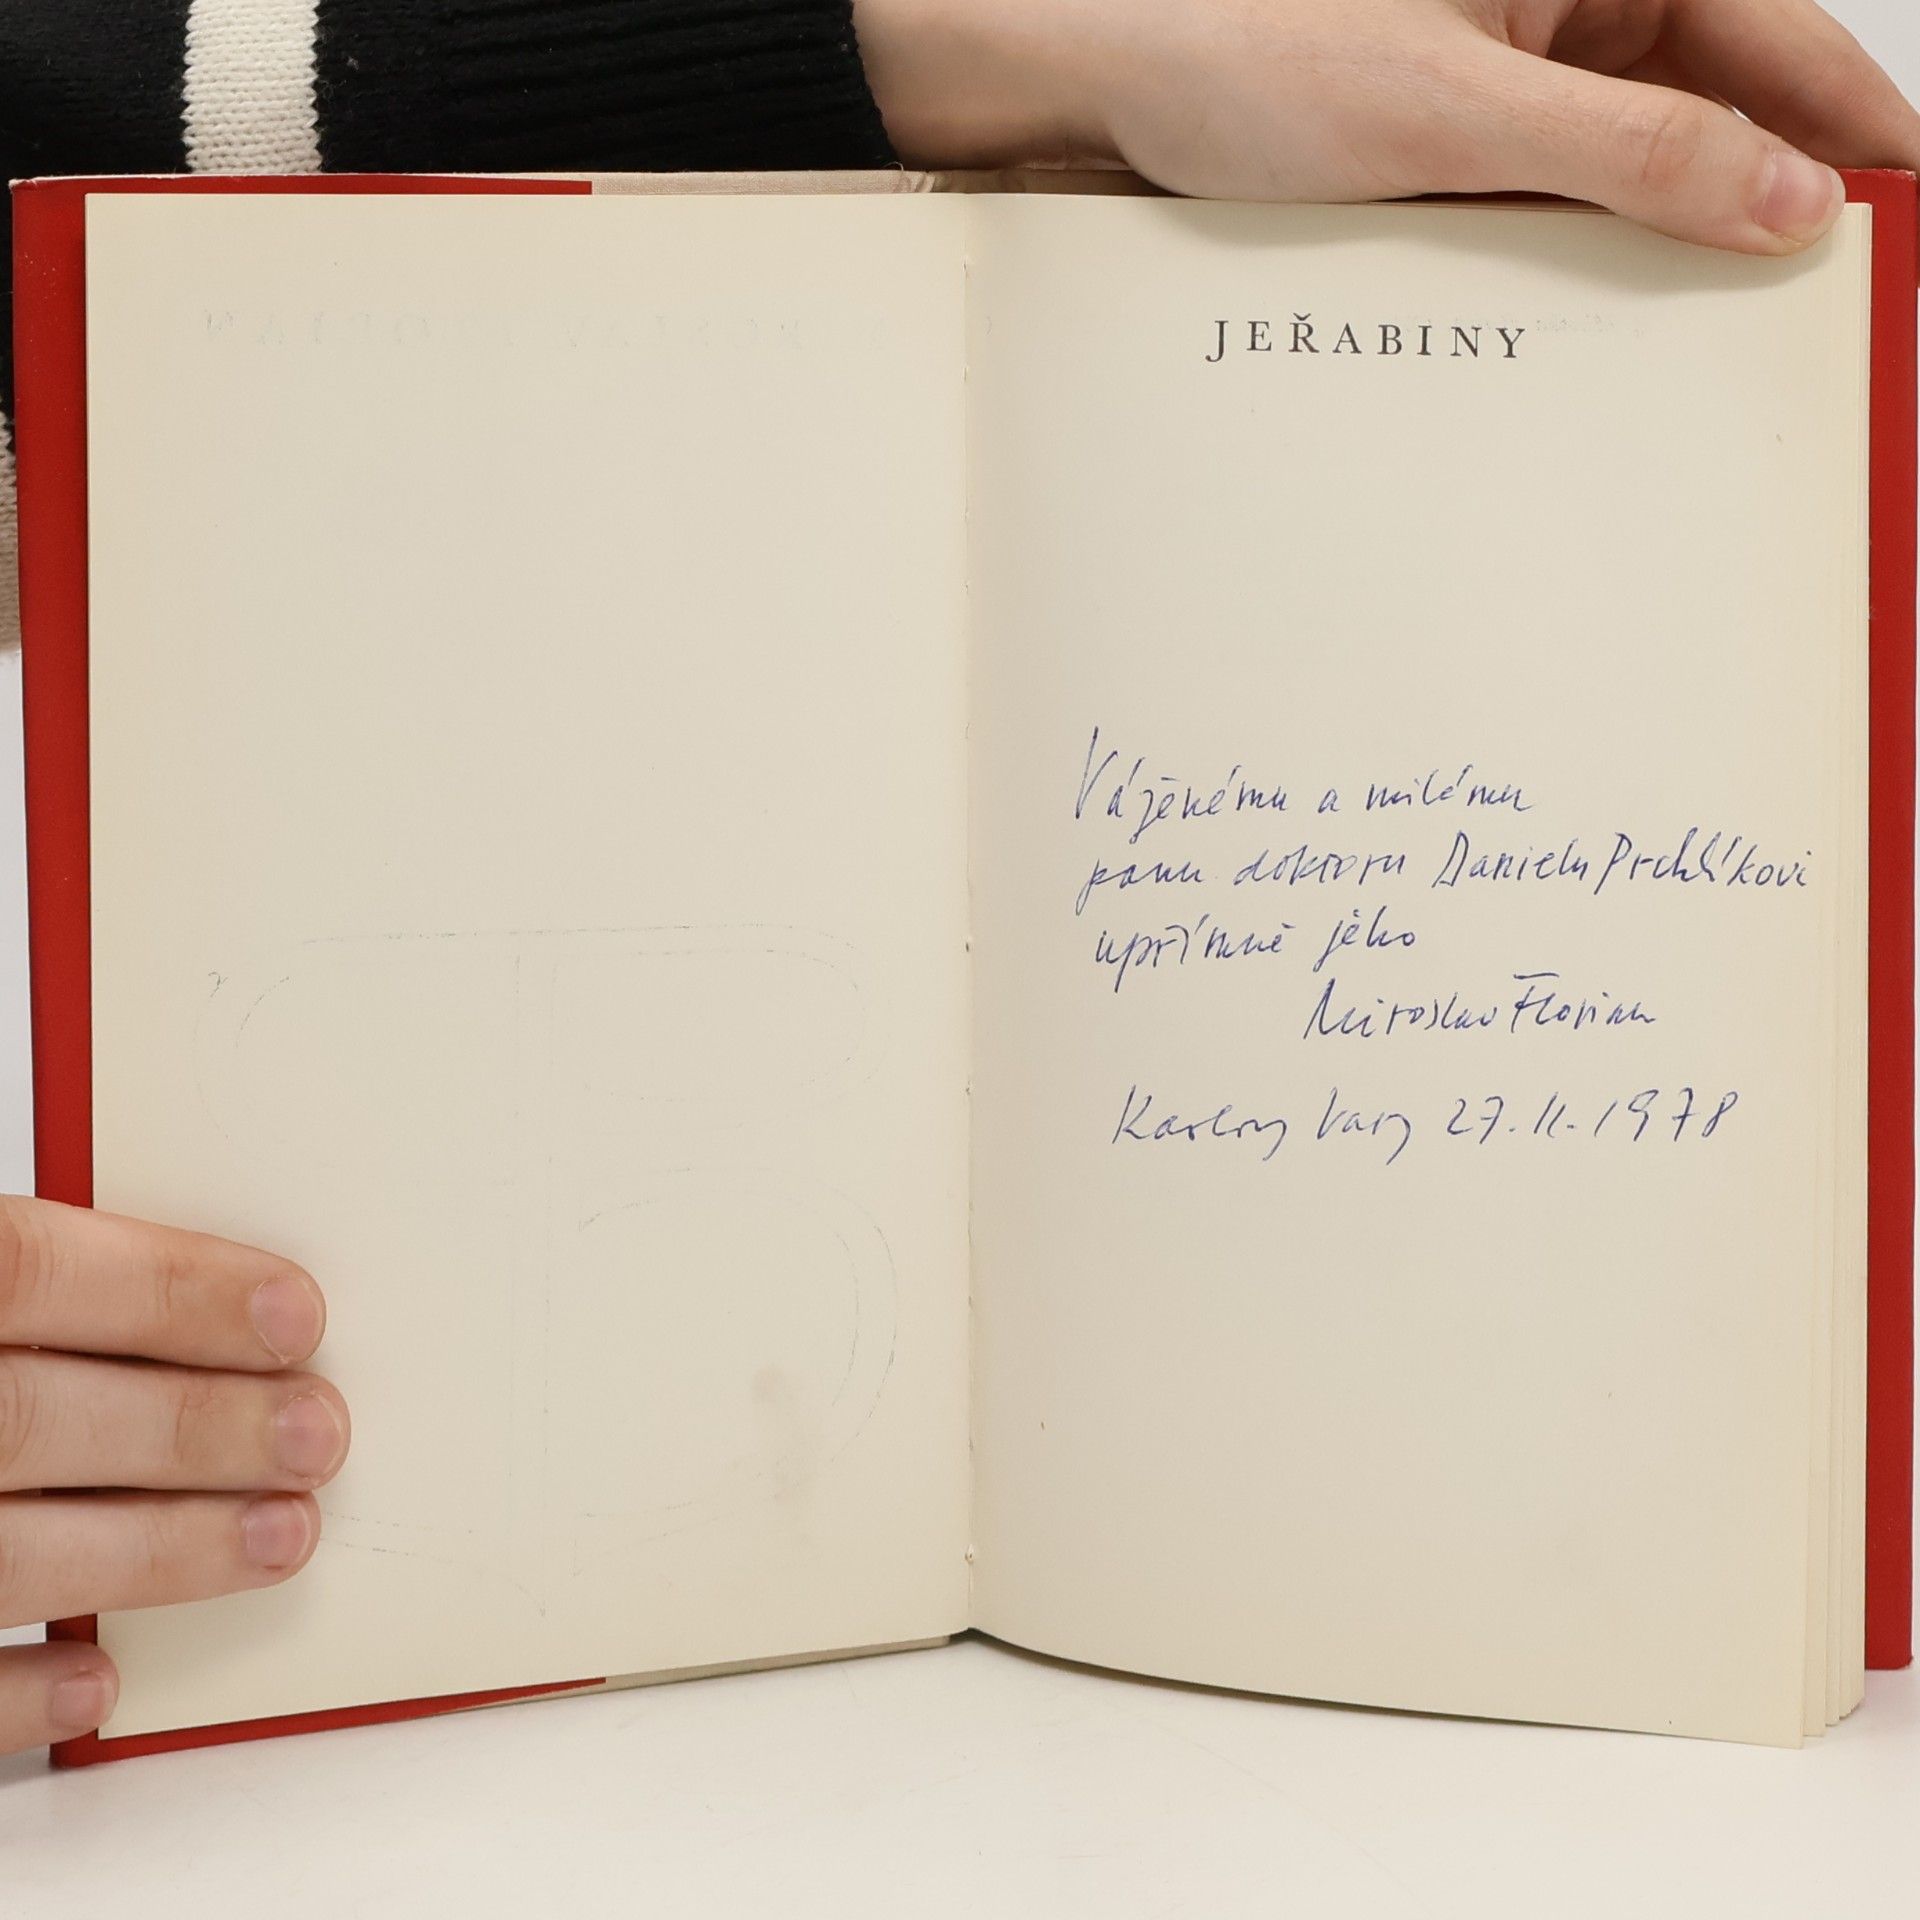 JEŘABINY
Váženému a milému
panu doktoru Danielu Prchlíkovi
upřímně jeho
Miroslav Florian
Karlovy Vary 27. II. 1978